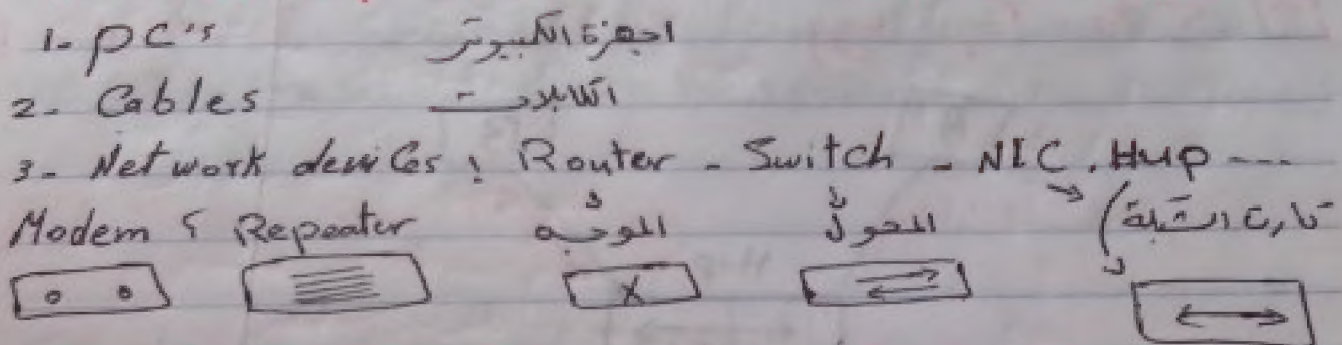 1- PC's اجهزة الكمبيوتر
2- Cables الكابلات
3- Network devices: Router - Switch - NIC. Hup ---
Modem & Repeater الموجه المحول كارت الشبكة
X